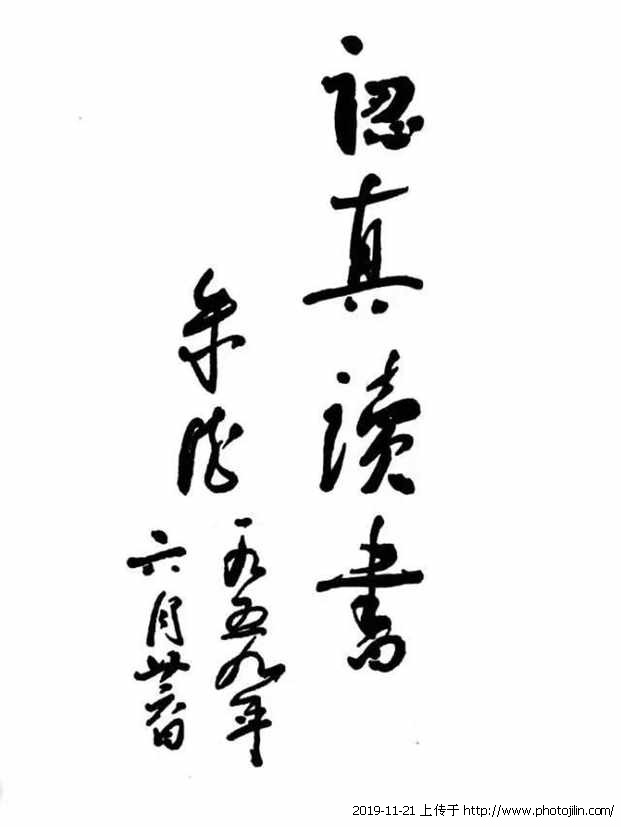 認真讀書
朱德
一九五九年
六月廿六日
2019-11-21 上传于 http://www.photojilin.com/